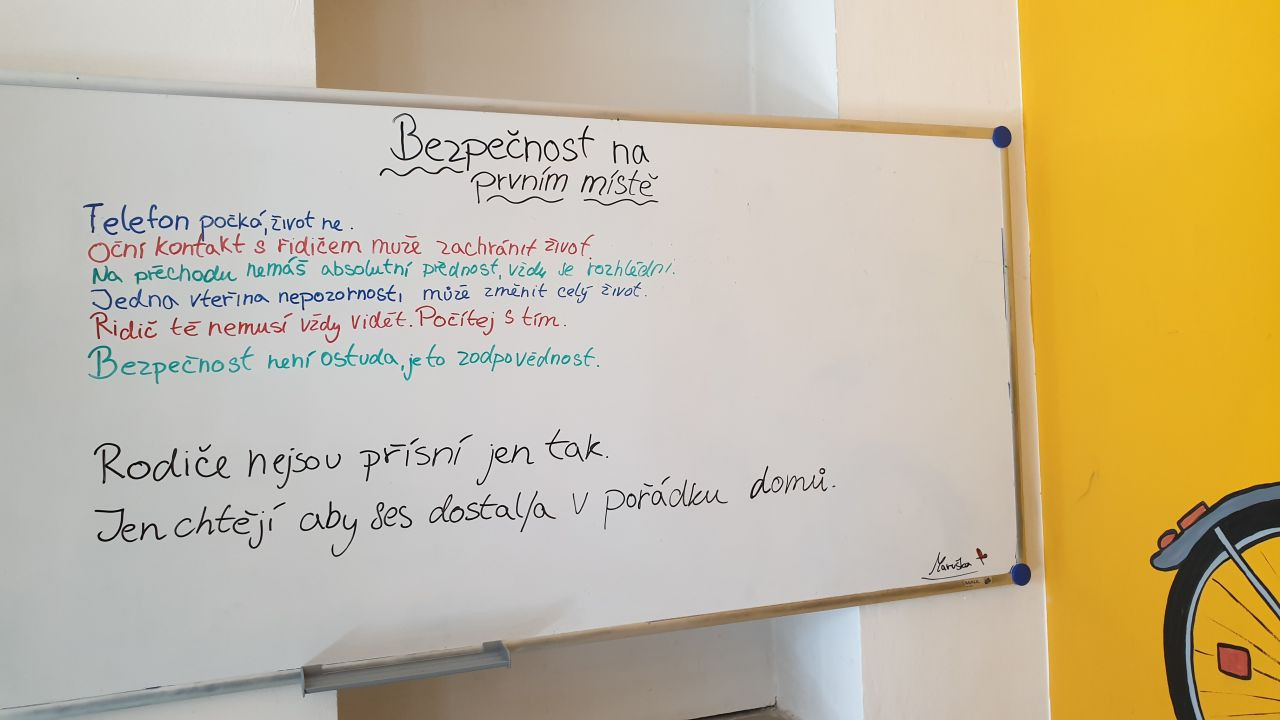 Bezpečnost na
prvním místě
Telefon počká, život ne.
Oční kontakt s řidičem muže zachránit život.
Na přechodu nemáš absolutní přednost, vždy se rozhlédni.
Jedna vteřina nepozornosti může změnit celý život.
Řidič tě nemusí vždy vidět. Počítej s tím.
Bezpečnost není ostuda, je to zodpovědnost.
Rodiče nejsou přísní jen tak.
Jen chtějí aby ses dostal/a v pořádku domů.
Maruška